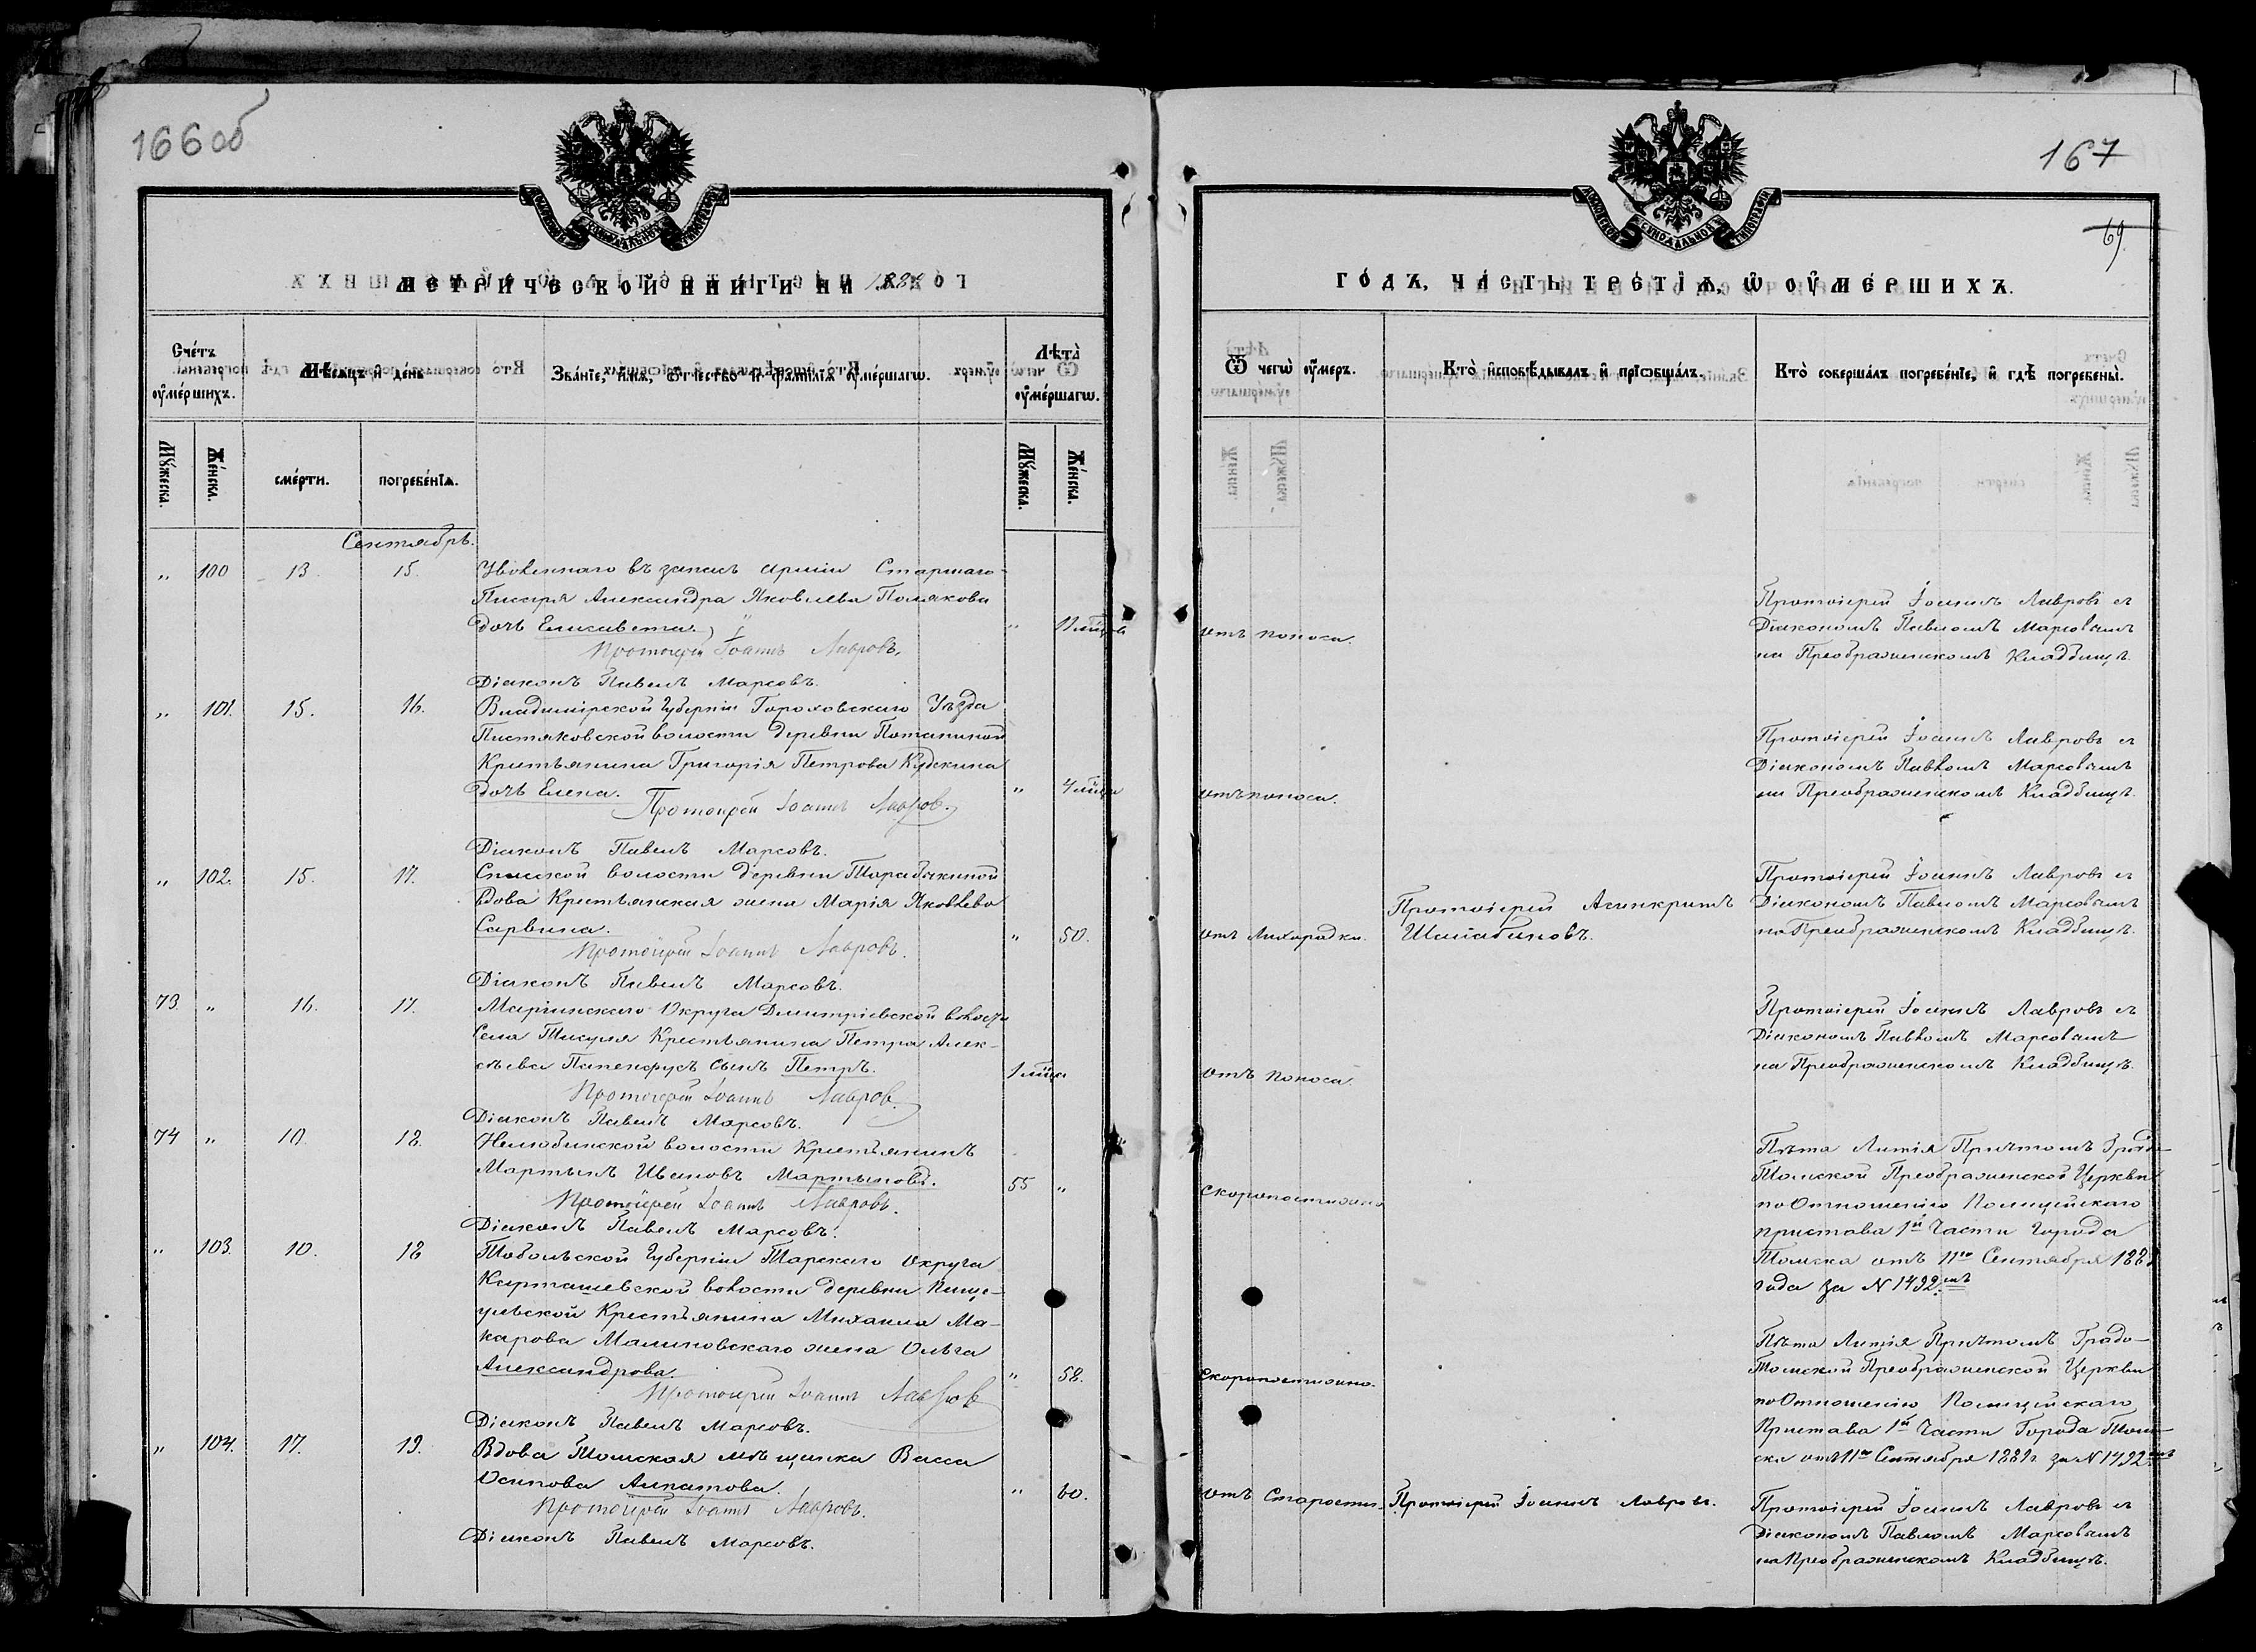 166 об
МЕТРИЧЕСКОЙ КНИГИ НА 188
Счéтъ оумéршихъ.
Мѣсяцъ и день
Звáнїе, имя, отчество и фамилїя оумéршагѡ.
Лѣта оумéршагѡ.
Мꙋжеска.
Жéнска.
смéрти.
погребéнїѧ.
Мꙋжеска.
Жéнска.
Сентябрь.
„ 100 13 15. Уволеннаго въ запасъ арміи Старшаго
Писаря Александра Яковлева Полякова
дочь Елисавета. „
Протоіерей Іоаннъ Лавровъ.
Діаконъ Павелъ Марсовъ.
„ 101. 15. 16. Владимірской Губерніи Гороховскаго Уѣзда
Пистяковской волости деревни Потаниной
Крестьянина Григорія Петрова Кудскина
дочь Елена. „ 4 мѣсяца
Протоіерей Іоаннъ Лавров.
Діаконъ Павелъ Марсовъ.
„ 102. 15. 17. Спасской волости деревни Тарабыкиной
Вдова Крестьянская жена Марія Яковлева
Сарвина. „ 50.
Протоіерей Іоаннъ Лавровъ.
Діаконъ Павелъ Марсовъ.
73 „ 16. 17. Маріинскаго Округа Димитріевской волости
Села Тисуля Крестьянина Петра Алек-
сѣева Папенфусъ сынъ Петръ.
Протоіерей Іоаннъ Лавров.
Діаконъ Павелъ Марсовъ.
74 „ 10. 18. Нелюбинской волости Крестьянинъ
Мартынъ Ивановъ Мартыновъ. 55 „
Протоіерей Іоаннъ Лавровъ.
Діаконъ Павелъ Марсовъ.
„ 103. 10. 18 Тобольской Губерніи Тарскаго округа
Карташевской волости деревни Пище-
ульской Крестьянина Михаила Ма-
карова Малиновскаго жена Ольга
Александрова. „ 58.
Протоіерей Іоаннъ Лавров
Діаконъ Павелъ Марсовъ.
„ 104. 17. 19. Вдова Томская мѣщанка Васса
Осипова Алпатова. „ 60.
Протоіерей Іоаннъ Лавровъ.
Діаконъ Павелъ Марсовъ.
167
69.
ГОДЪ, ЧАСТЬ ТРЕТЇѦ, Ѡ ОУМЕРШИХЪ.
Ѿ чегѡ оумеръ.
Ктò исповѣдывалъ и прїѡбщáлъ.
Ктò совершáлъ погребéнїе, и гдѣ погребены.
Протоіерей Іоаннъ Лавровъ съ
отъ поноса. Діакономъ Павломъ Марсовымъ
на Преображенскомъ Кладбищѣ.
Протоіерей Іоаннъ Лавровъ съ
Діакономъ Павломъ Марсовымъ
отъ поноса. на Преображенскомъ Кладбищѣ.
Протоіерей Іоаннъ Лавровъ съ
Протоіерей Асинкритъ Діакономъ Павломъ Марсовымъ
отъ Лихорадки. на Преображенскомъ Кладбищѣ.
Протоіерей Іоаннъ Лавровъ съ
Діакономъ Павломъ Марсовымъ
отъ поноса. на Преображенскомъ Кладбищѣ.
Пѣта Литія Причтомъ Градо-
Томской Преображенской Церкви
скоропостижно по Отношенію Полицейскаго
пристава 1й Части города
Томска отъ 11го Сентября 188
года за N 1492.мъ
Пѣта Литія Причтомъ Градо-
скоропостижно. Томской Преображенской Церкви
по Отношенію Полицейскаго
Пристава 1й Части Города Том-
ска отъ 11го Сентября 188 г. за N 1492мъ
отъ Старости. Протоіерей Іоаннъ Лавровъ. Протоіерей Іоаннъ Лавровъ съ
Діакономъ Павломъ Марсовымъ
на Преображенскомъ Кладбищѣ.